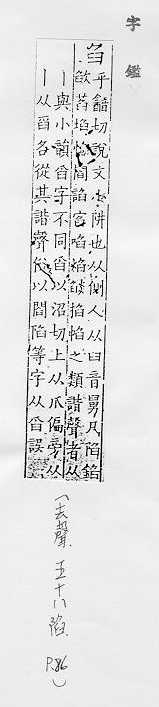 字鑑
臽
乎韽切說文小阱也从側人从臼音舅凡陷錎
欿萏埳閻諂窞啗焰餤掐之類諧聲者从
丨與小韻舀字不同舀以沼切上从爪偏旁从
丨从舀各從其諧聲俗以閻陷等字从舀誤
(去聲 五十八 陷 P.86)